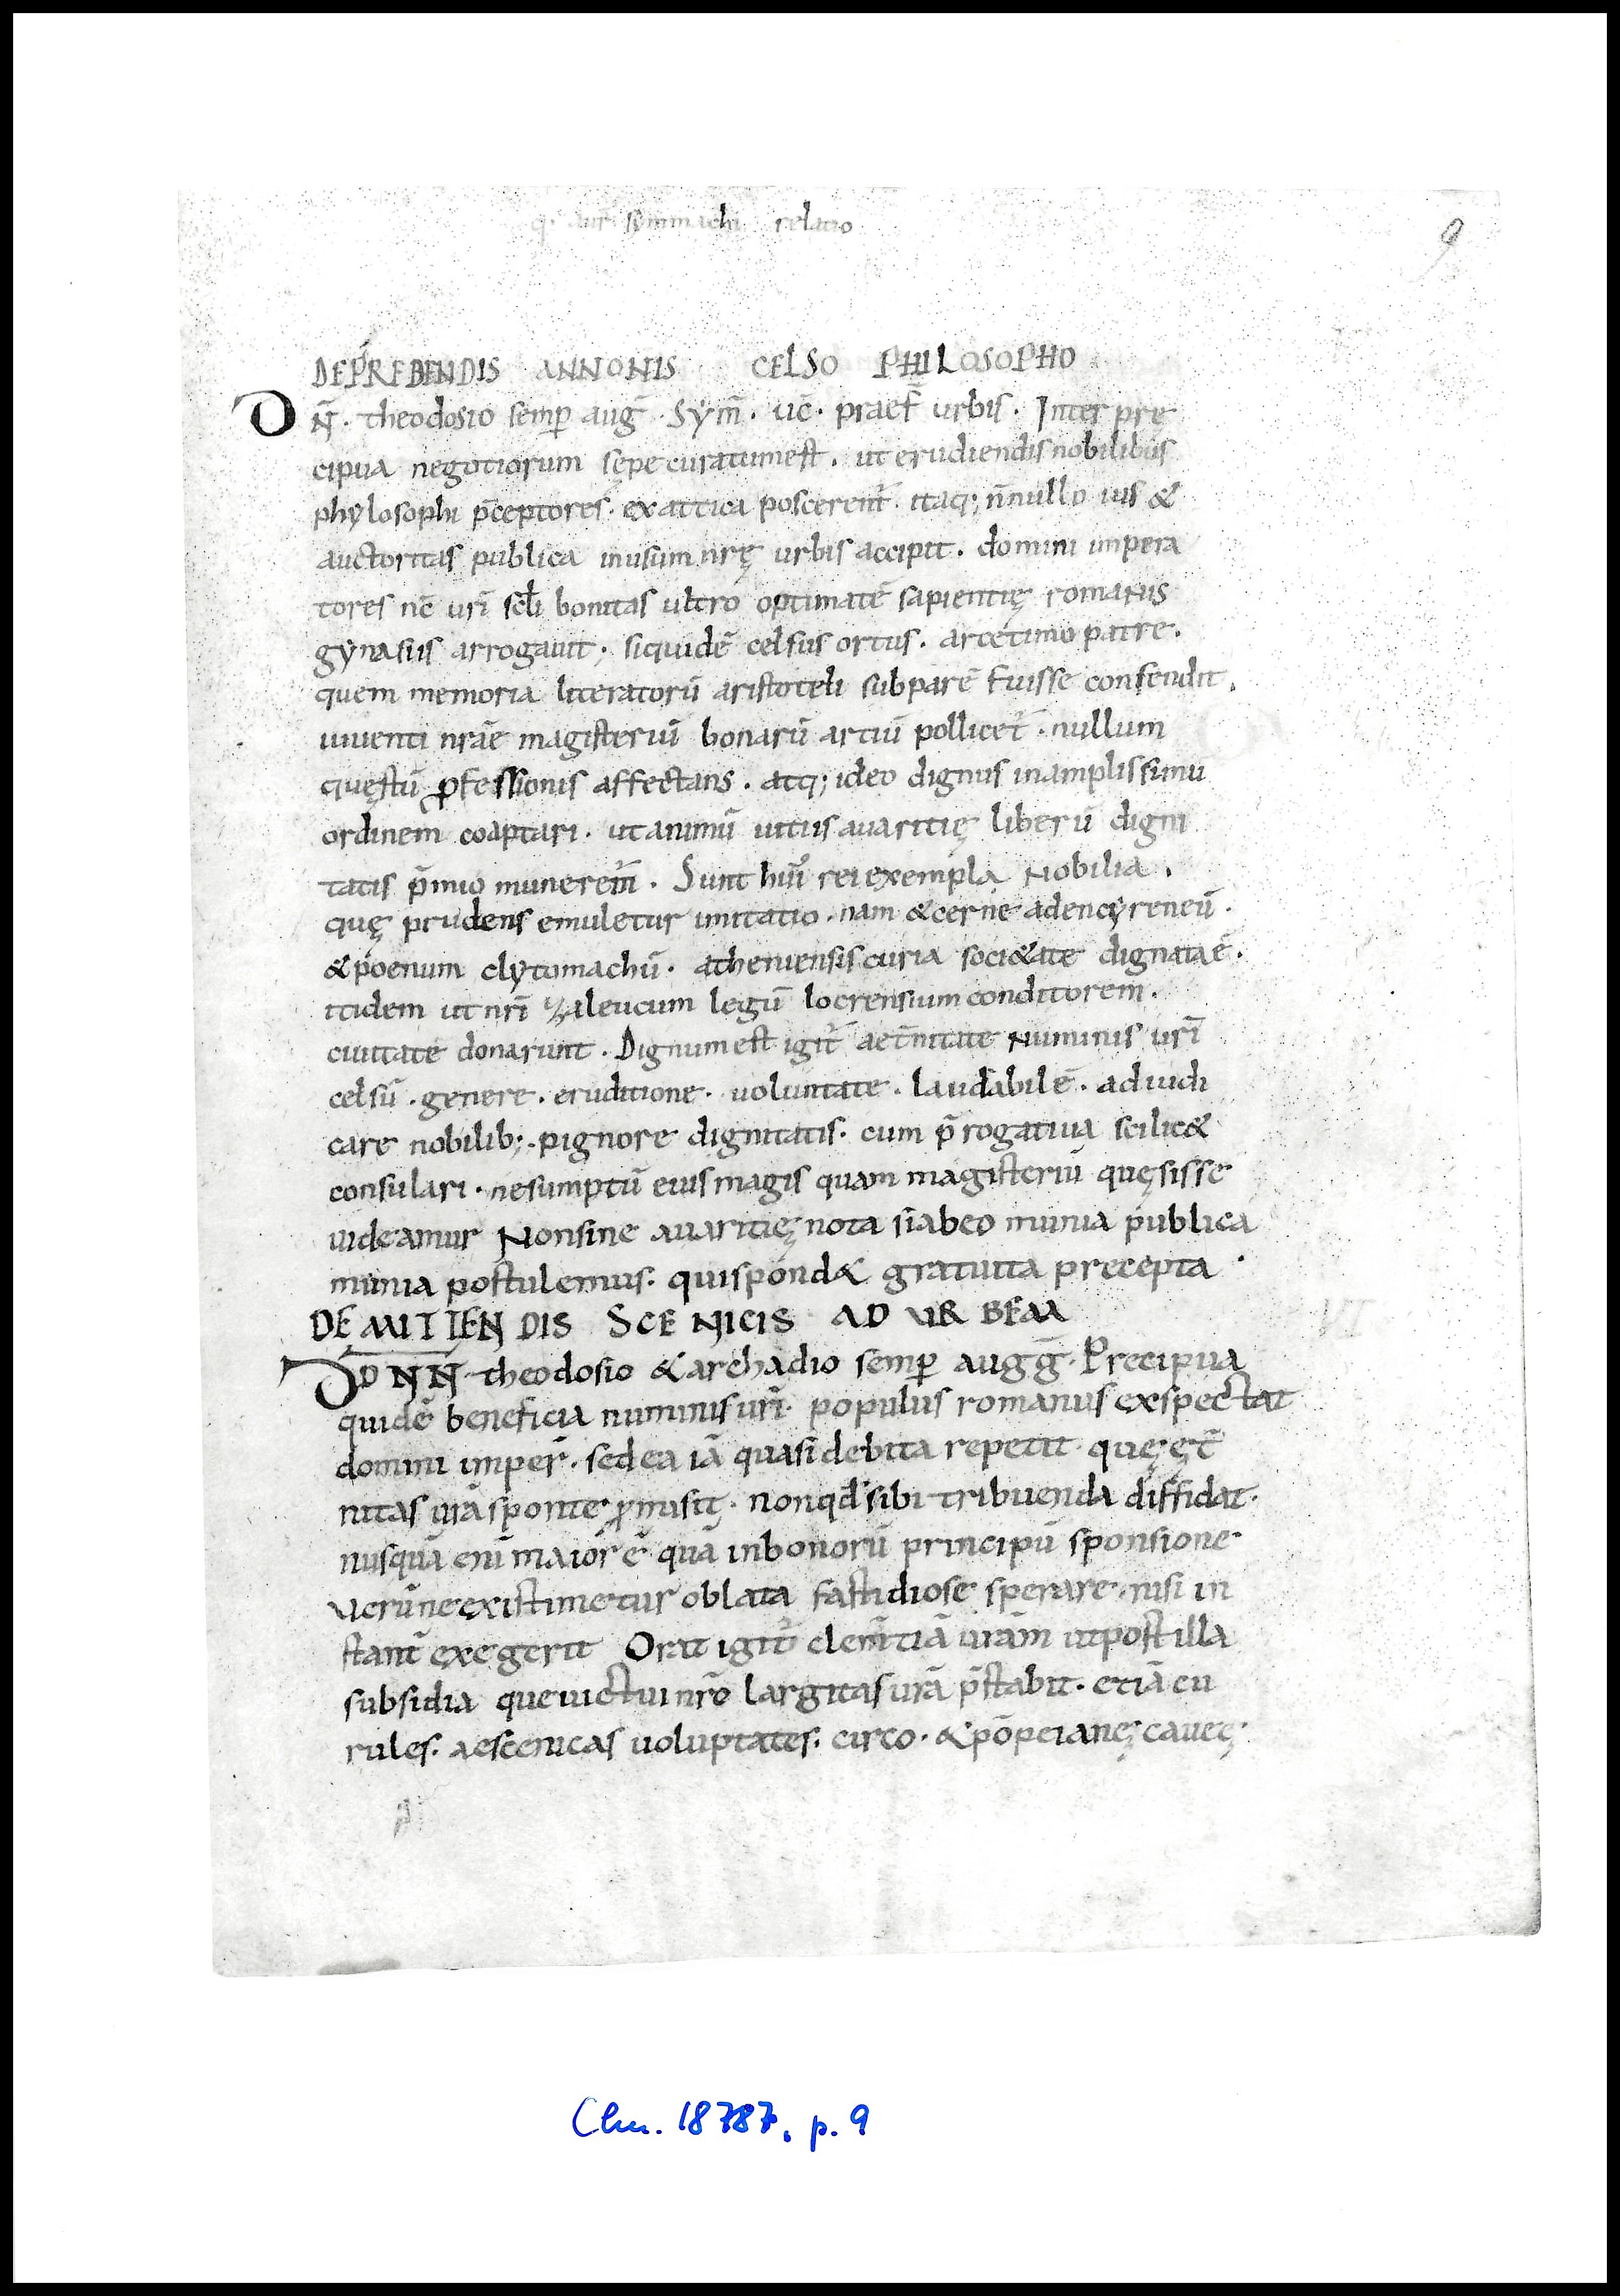 q. aur symmachi relatio
9
DE PREBENDIS ANNONIS CELSO PHILOSOPHO
DN̄. theodosio semꝑ auḡ. Sym̄. uc̄. praef̄ urbis. Inter pre
cipua negotiorum sępe curatum est. ut erudiendis nobilibus
phylosophi p̄ceptores. ex attica poscerent᷑. itaq; n̄ nullo uis &
auctoritas publica in usum nr̄ę urbis accipit. domini impera
tores nc̄ uri̅ scłi bonitas ultro optimatē sapientię romanis
gynasiis arrogauit; siquidē celsus ortus. arcetimo patre.
quem memoria literatorū aristoteli subparē fuisse consendit.
iuuenti nr̄ae magisteriū bonarū artiū pollicet᷑. nullum
quęstū ꝓfessionis affectans. atq; ideo dignus in amplissimū
ordinem coaptari. ut animū uitiis auaritię liberū digni
tatis p̄mio munerem᷑. Sunt hui᷒ rei exempla Nobilia.
quę prudens emuletur imitatio. nam & cerne adencyreneū.
& poenum clytomachū. atheniensis curia soci&ate dignata ē.
itidem ut nr̄i zaleucum legū locrensium conditorem.
ciuitate donarunt. Dignum est igit᷑ aet̄nitate Numinis ur̄i
celsū. genere. eruditione. uoluntate. laudabilē. adiudi
care nobilib;. pignore dignitatis. cum p̄rogatiua scilic&
consulari. ne sumptū eius magis quam magisteriū quęsisse
uideamur Non sine auaritię nota si abeo munia publica
munia postulemus. qui spond& gratuita precepta.
DE MITTENDIS SCENICIS AD URBEM
DD NN. theodosio & archadio semꝑ augḡ. Precipua
quidē beneficia numinis ur̄i. populus romanus exspectat
domini imper̄. sed ea iā quasi debita repetit. quę ęt̄
nitas ur̄a sponte ꝓmisit. non qđ sibi tribuenda diffidat.
nusquā eni̅ maior ē quā in bonorū principū sponsione.
uerū ne existimetur oblata fastidiose sperare. nisi in
stant᷑ exegerit Orat igit᷑ clem̄tiā ur̄am ut post illa
subsidia que uictui nr̄o largitas ur̄a p̄stabit. etiā cu
rules. aescenicas uoluptates. circo. & pōpeianę caueę.
Clm. 18787, p. 9